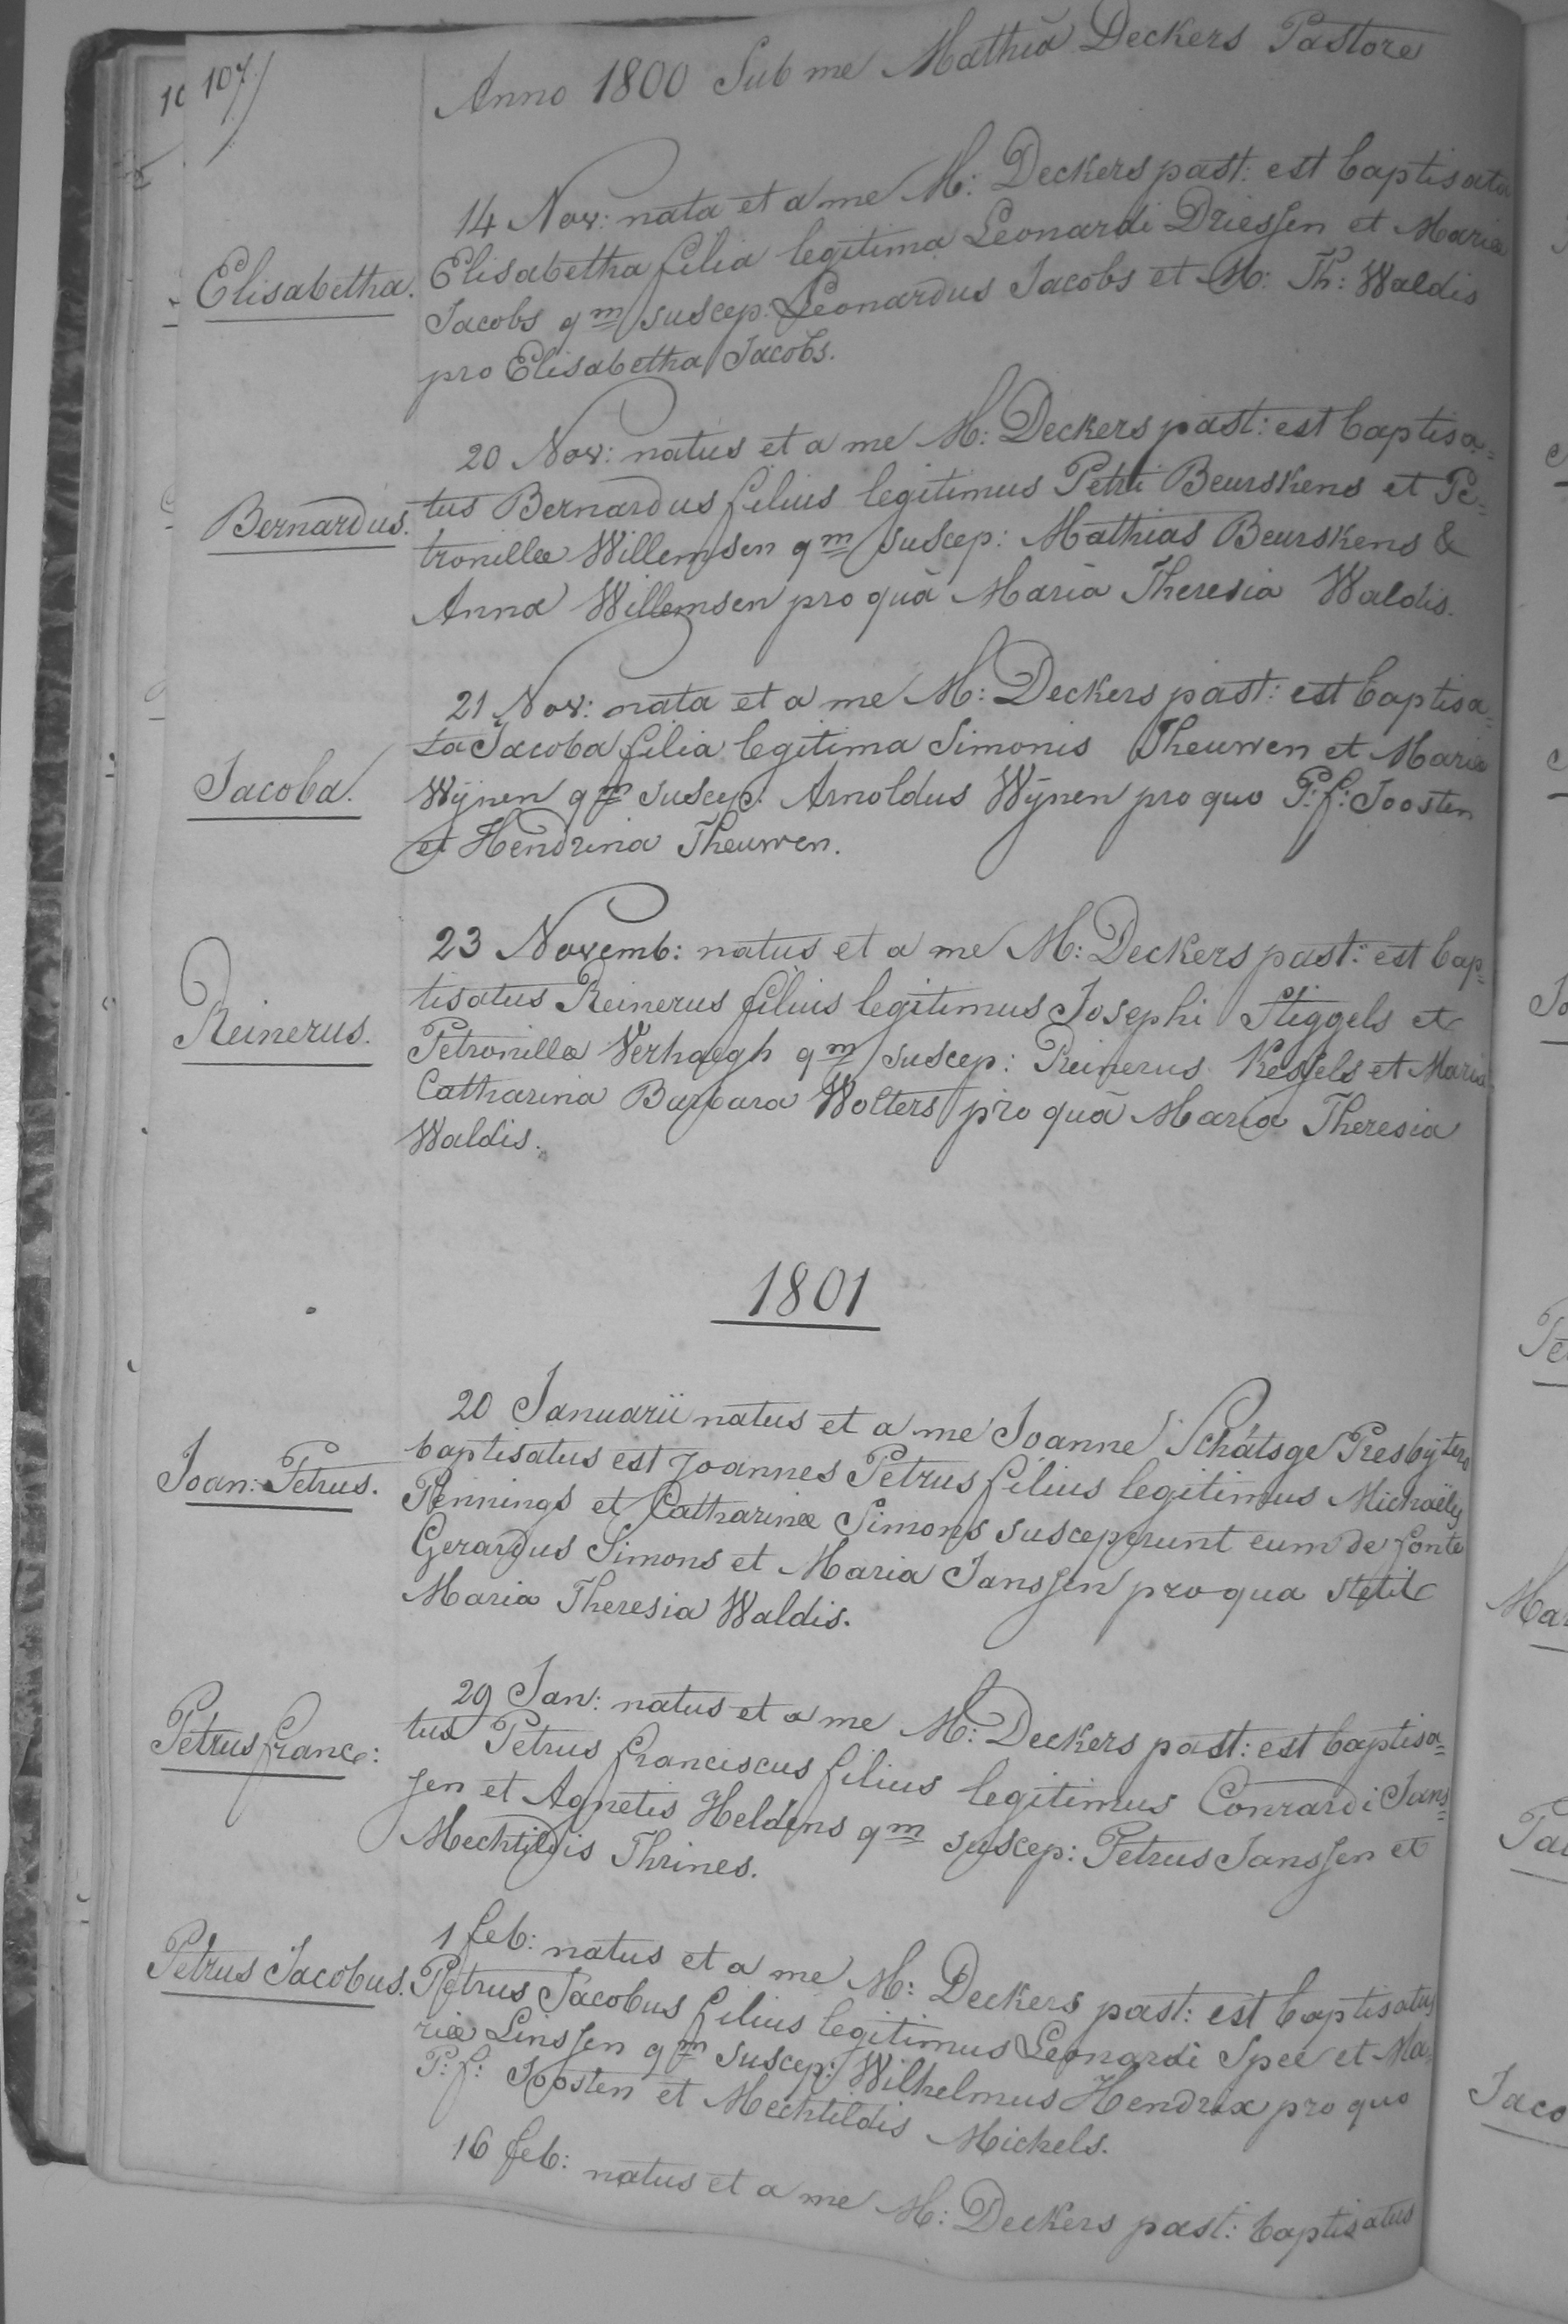 107
Anno 1800 Sub me Mathiâ Deckers Pastore
14 Nov: nata et a me M: Deckers past: est baptisata
Elisabetha.
Elisabetha filia legitima Leonardi Driessen et Mariæ
Jacobs qm suscep: Leonardus Jacobs et M: Th: Waldis
pro Elisabetha Jacobs.
20 Nov: natus et a me M: Deckers past: est baptisa=
Bernardus.
tus Bernardus filius legitimus Petri Beurskens et Pe=
tronillæ Willemsen qm suscep: Mathias Beurskens &
Anna Willemsen pro quâ Mariâ Theresia Waldis.
21 Nov: nata et a me M: Deckers past: est baptisa=
ta Jacoba filia legitima Simonis Theuwen et Mariæ
Jacoba.
Wÿnen qm suscep: Arnoldus Wÿnen pro quo P: f: Joosten
et Hendrina Theuwen.
23 Novemb: natus et a me M: Deckers past: est bap=
tisatus Reinerus filius legitimus Josephi Stiggels et
Reinerus.
Petronillæ Verhaegh qm suscep: Reinerus Kessels et Maria
Catharina Barbara Wolters pro quâ Maria Theresia
Waldis.
1801
20 Januarii natus et a me Joanne Schátsge Presbÿtero
Joan: Petrus.
baptisatus est Joannes Petrus filius legitimus Michaëlis
Pennings et Catharinæ Simons susceperunt eum de fonte
Gerardus Simons et Maria Janssen pro qua stetit
Maria Theresia Waldis.
29 Jan: natus et a me M: Deckers past: est baptisa=
Petrus franc:
tus Petrus franciscus filius legitimus Conrardi Jans=
sen et Agnetis Heldens qm suscep: Petrus Janssen et
Mechtildis Thrines.
1 feb: natus et a me M: Deckers past: est baptisatus
Petrus Jacobus.
Petrus Jacobus filius legitimus Leonardi Spee et Ma=
riæ Linssen qm suscep: Wilhelmus Hendrix pro quo
P: f: Joosten et Mechtildis Michels.
16 feb: natus et a me M: Deckers past: baptisatus